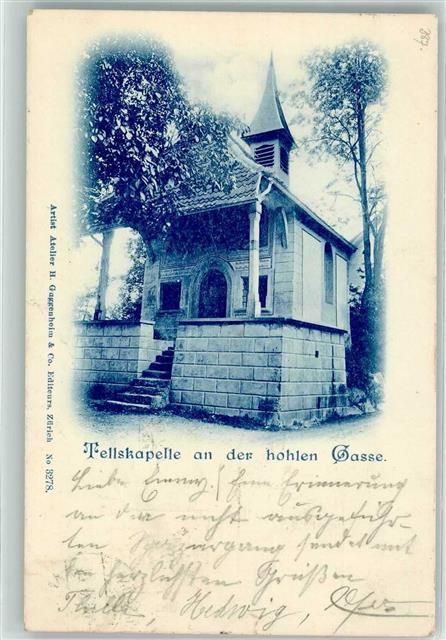 387.
Artist Atelier H. Guggenheim & Co. Editeurs, Zürich No 3278.
Tellskapelle an der hohlen Gasse.
Liebe Emmy! Eine Erinnerung
an den nicht ausgeführ-
ten Spaziergang sendet mit
den herzlichsten Grüßen
Hedwig,